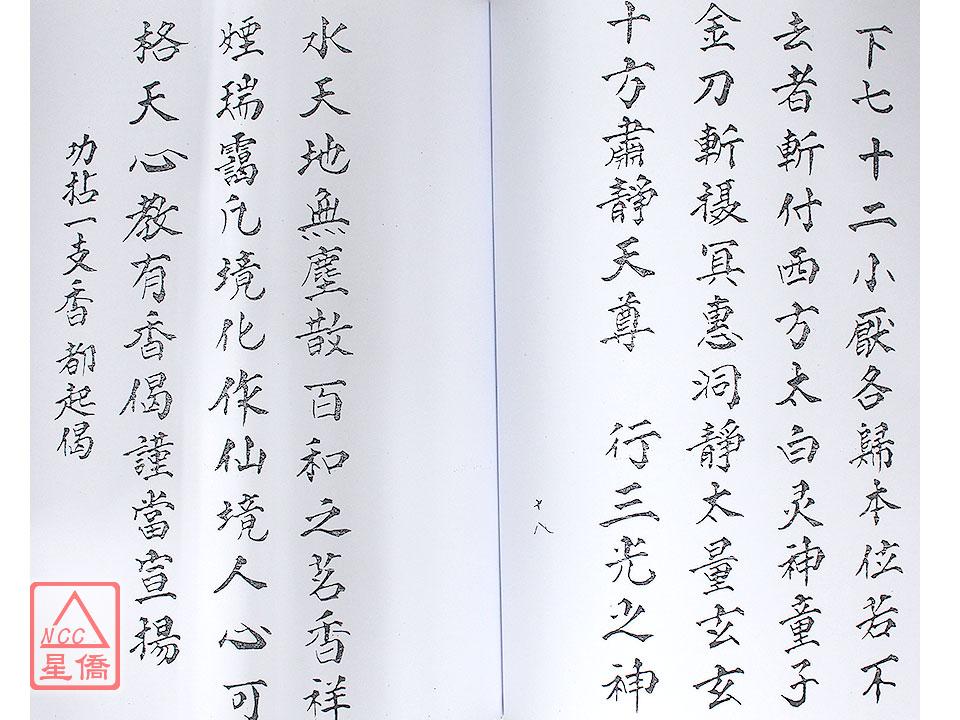 下七十二小厭各歸本位若不
去者斬付西方太白灵神童子
金刀斬裰冥惠洞靜太量玄玄
十方肅靜天尊 行三光之神
十八
水天地無塵散百和之茗香祥
煙瑞靄凡境化作仙境人心可
格天心教有香偈謹當宣揚
功拈一支香都起偈
NCC
星僑